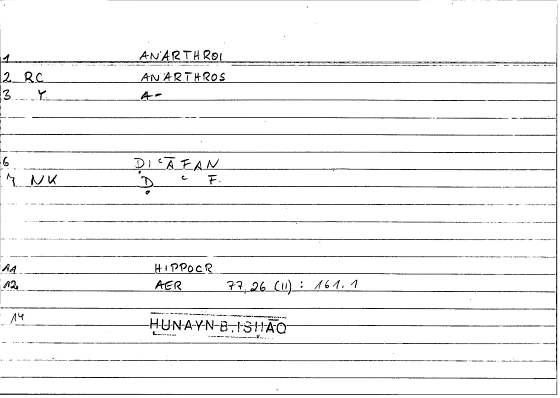 1 ANARTHROI
2 RC ANARTHROS
3 Y A-
6 ḌIʿĀFAN
7 NK Ḍ ʿ F.
11 HIPPOCR
12 AER 77,26 (11) : 161.1
14 ḤUNAYN B. ISḤĀQ